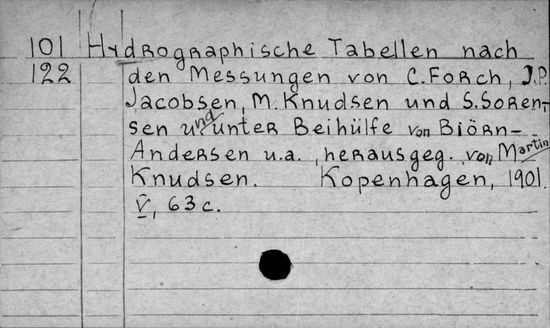 101 Hydrographische Tabellen nach
122 den Messungen von C. Forch, J.P.
Jacobsen, M. Knudsen und S. Soren-
sen und unter Beihülfe von Biörn-
Andersen u.a., herausgeg. von Martin
Knudsen. Kopenhagen, 1901.
V, 63 c.